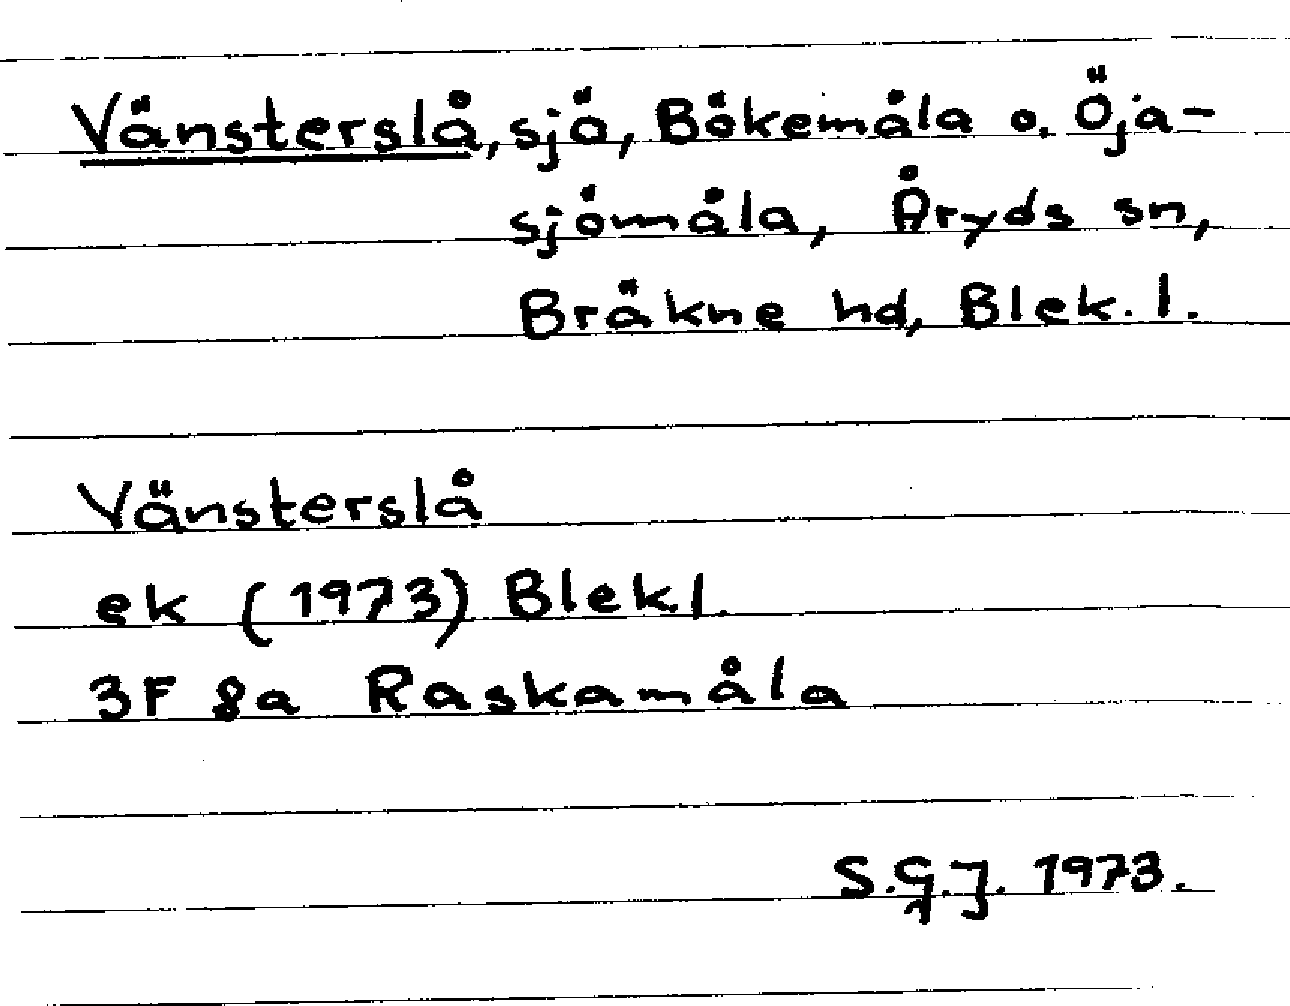 Vänsterslå, sjö, Bökemåla o. Öja-
sjömåla, Åryds sn,
Bräkne hd, Blek. l.
Vänsterslå
ek (1973) Blek.l.
3F 8a Raskamåla
S.G.J. 1973.